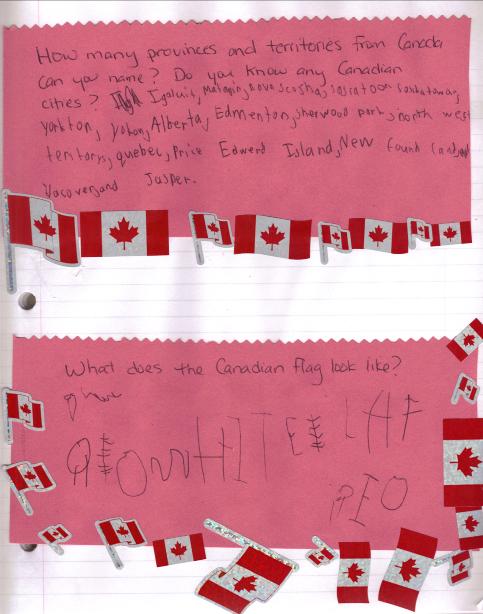 How many provinces and territories from Canada
can you name? Do you know any Canadian
cities? Iqaluit, Matagin, nova scosha, sascatoon saskatawan,
yorkton, yokon, Alberta, Edmenton, sherwood park, north west
territorys, quebec, Price Edward Island, New found land
Vacover and Jasper.
What does the Canadian flag look like?
WHITE LAF
RED